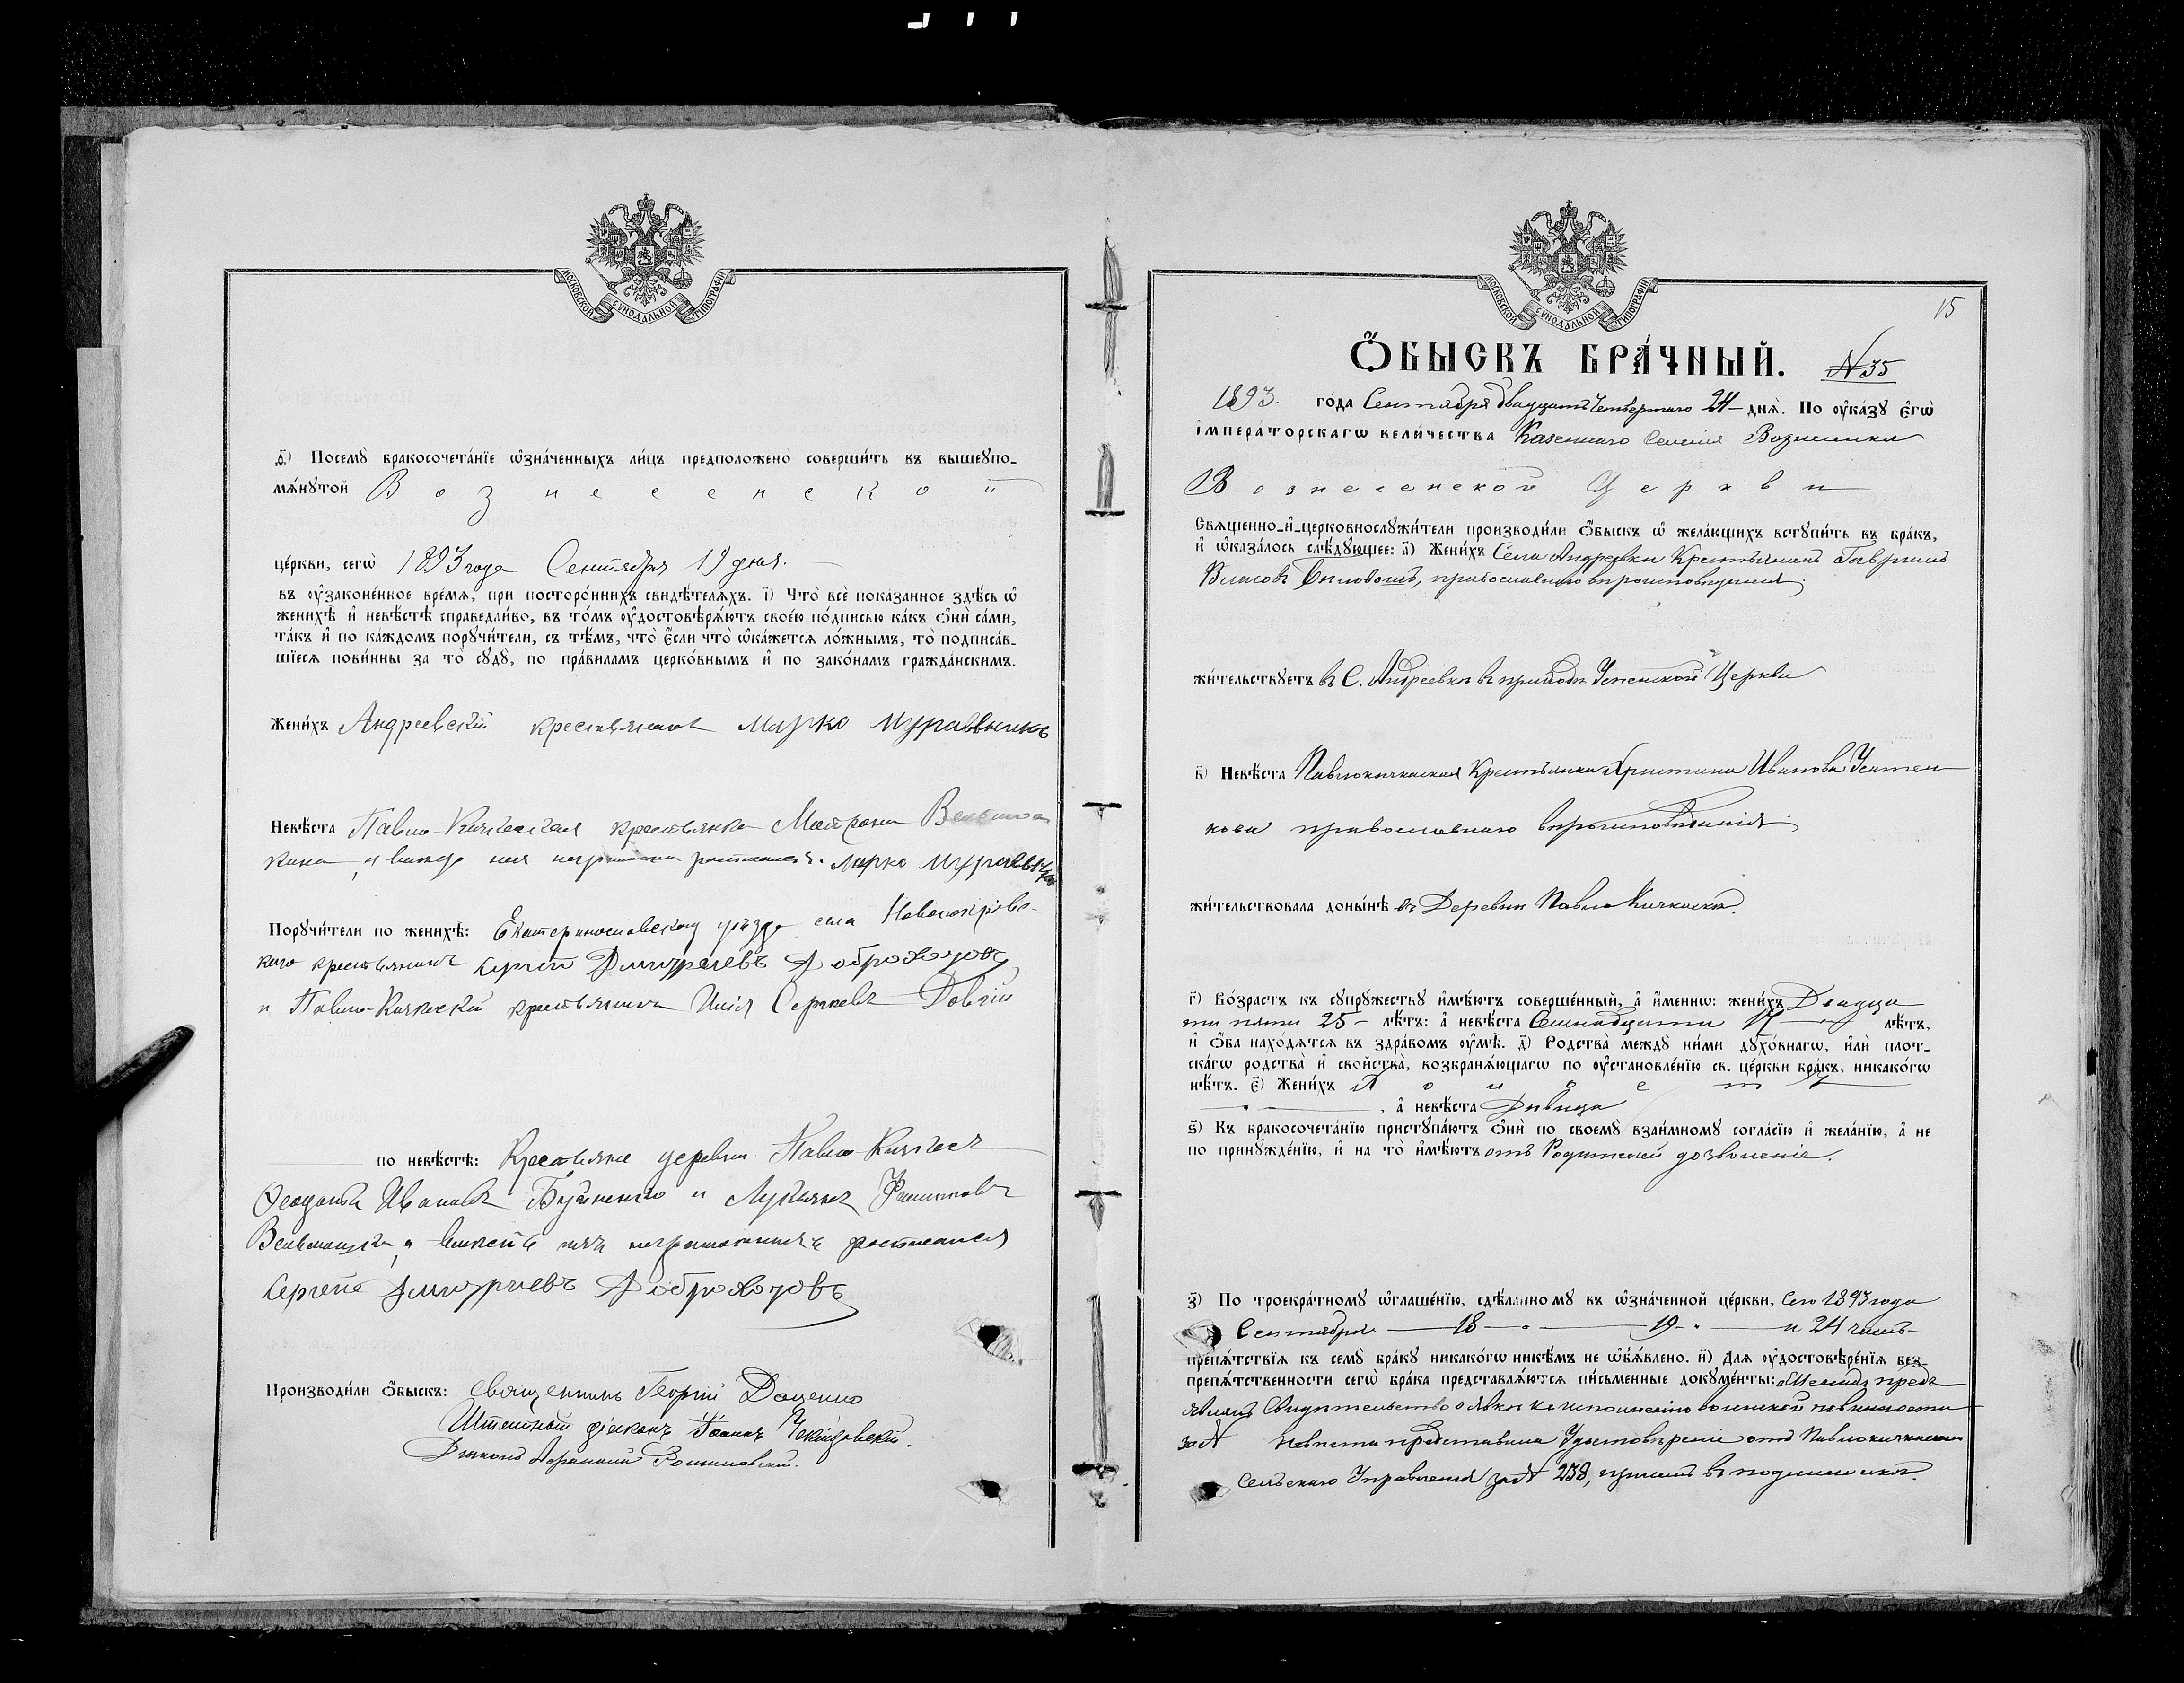 МОСКОВСКОЙ СѴНОДАЛЬНОЙ ТИПОГРАФІИ
ѳ҃) Посемꙋ̀ бракосочета́нїе ѡ҆зна́ченныхъ ли́цъ предположено̀ соверши́ть въ вышеꙋпо-
мѧ́нꙋтой Вознесенской
це́ркви, сегѡ̀ 1893 года Сентября 19 дня.
въ ᲂу҆зако́ненное вре́мѧ, при посторо́ннихъ свидѣ́телѧхъ. і҃) Что̀ всѐ пока́занное здѣ́сь ѡ҆
женихѣ̀ и҆ невѣ́стѣ справедли́во, въ то́мъ ᲂу҆достовѣрѧ́ютъ свое́ю по́дписью ка́къ ѻ҆нѝ са́ми,
та́къ и҆ по ка́ждомъ порꙋчи́тели, съ тѣ́мъ, что̀ є҆́сли что̀ ѡ҆ка́жетсѧ ло́жнымъ, то̀ подписа́в-
шїесѧ пови́нны за то̀ сꙋдꙋ̀, по пра́виламъ церко́внымъ и҆ по зако́намъ гражда́нскимъ.
Жени́хъ Андреевскій крестьянинъ Марко
Невѣ́ста Павло-Кичкаская крестьянка Матрона
и вместо нея неграмотной росписался. Марко
Порꙋчи́тели по женихѣ̀: Екатеринославскаго уѣзда села Новопокровс-
каго крестьянинъ Сергѣй Дмитріевъ Доброхотовъ
и Павло-Кичкаскій крестьянинъ Илія Сергѣевъ Довгій
по невѣ́стѣ: Крестьяне деревни Павло-Кичкас
Ивановъ и Лукьянъ Филиповъ
а вместо ихъ неграмотныхъ росписался
Сергѣй Дмитріевъ Доброхотовъ
Производи́ли ѻ҆́быскъ: Священникъ Георгій Даценко
Штатный діаконъ Іоаннъ
Діаконъ
МОСКОВСКОЙ СѴНОДАЛЬНОЙ ТИПОГРАФІИ
15
Ѻ҆́БЫСКЪ БРА́ЧНЫЙ. N 35
1893 года Сентября двадцать четвертаго 24 днѧ̀. По ᲂу҆ка́зꙋ є҆гѡ̀
і҆мпера́торскагѡ вели́чества Казеннаго селенія Вознесенки
Вознесенской Церкви
Свѧще́нно-и҆-церковнослꙋжи́тели производи́ли ѻ҆́быскъ ѡ҆ жела́ющихъ встꙋпи́ть въ бра́къ,
и҆ ѡ҆каза́лось слѣ́дꙋющее: а҃) Жени́хъ Села Андреевки Крестьянинъ Гавриилъ
Власовъ православнаго вероисповѣданія
жи́тельствꙋетъ въ С. Андреевкѣ въ приходѣ Успенской Церкви
в҃) Невѣ́ста Павлокичкаская Крестьянка Христина Иванова
кова православнаго вероисповѣданія
жи́тельствовала доны́нѣ въ Деревни Павло Кичкаскѣ.
г҃) Во́зрастъ къ сꙋпрꙋ́жествꙋ и҆мѣ́ютъ соверше́нный, а҆ и҆́менно: жени́хъ Двадца
ти пяти 25 – лѣ́тъ: а҆ невѣ́ста Семнадцати 17 лѣ́тъ,
и҆ ѻ҆́ба нахо́дѧтсѧ въ здра́вомъ ᲂу҆мѣ̀. д҃) Родства̀ междꙋ̀ ни́ми дꙋхо́внагѡ, и҆лѝ плот-
ска́гѡ родства̀ и҆ сво́йства̀, возбранѧ́ющагѡ по ᲂу҆становле́нїю св. це́ркви бра́къ, никако́гѡ
нѣ́тъ. є҃) Жени́хъ холостъ
, а҆ невѣ́ста Дѣвица
ѕ҃) Къ бракосочета́нїю пристꙋпа́ютъ ѻ҆нѝ по своемꙋ̀ взаи́мномꙋ согла́сїю и҆ жела́нїю, а҆ не
по принꙋжде́нїю, и҆ на то̀ и҆мѣ́ютъ отъ Родителей дозволеніе.
з҃) По троекра́тномꙋ ѡ҆глаше́нїю, сдѣ́ланномꙋ въ ѡ҆зна́ченной це́ркви, сего 1893 года
Сентября 18 – 19 – и 24 чиселъ
препѧ́тствїѧ къ семꙋ̀ бра́кꙋ никако́гѡ никѣ́мъ не ѡ҆б̾ѧ́влено. и҃) Для ᲂу҆достовѣре́нїѧ без-
препѧ́тственности сегѡ̀ бра́ка представлѧ́ютсѧ пи́сьменные докꙋме́нты: Женихъ предъ
явилъ Свидетельство о явкѣ къ исполненію воинской повинности
за N Невеста представила Удостовѣреніе отъ Павлокичкаскаго
Сельскаго Управленія за N 238, въ подлинникѣ.